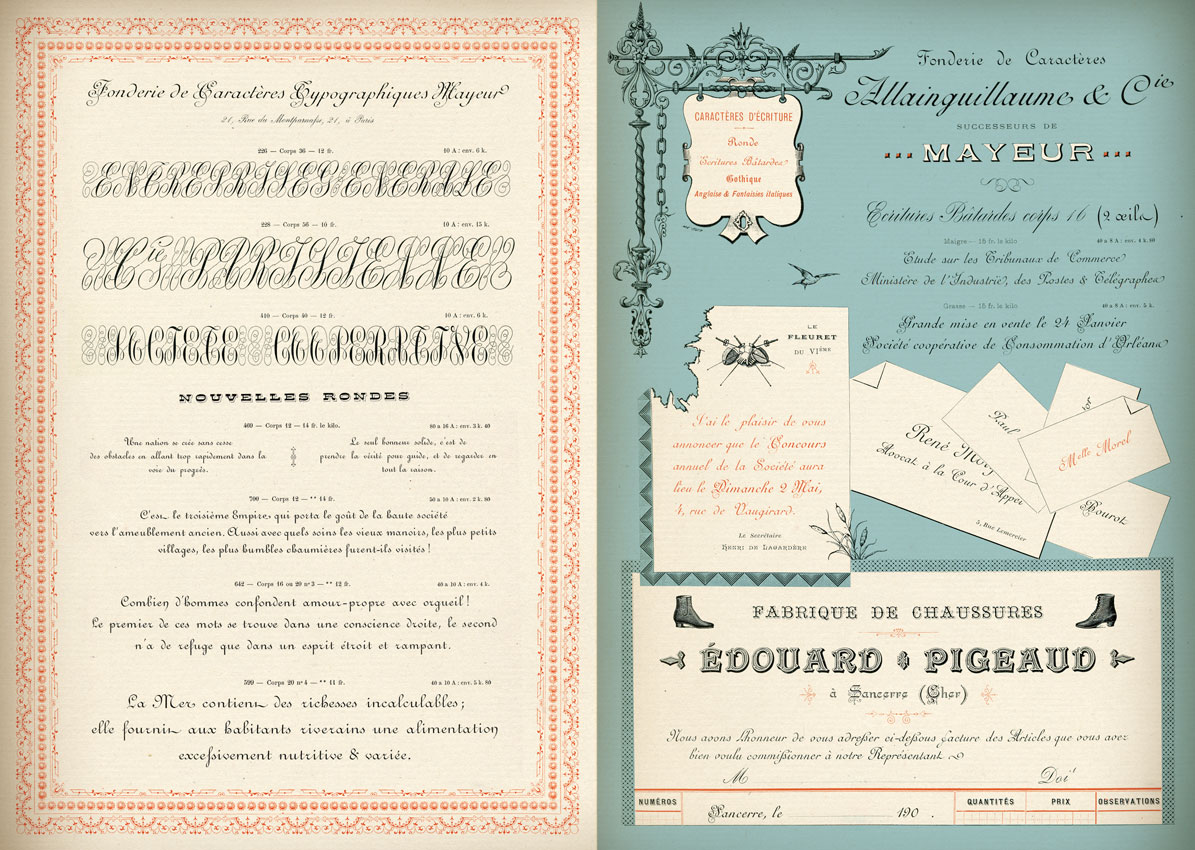 Fonderie de Caractères Typographiques Mayeur
21, Rue du Montparnasse, 21, à Paris
226 — Corps 36 — 12 fr. 10 A : env. 6 k.
ENTREPRISES GENERALE
228 — Corps 56 — 10 fr. 10 A : env. 15 k.
Cie PARISIENNE
410 — Corps 40 — 12 fr. 10 A : env. 6 k.
SOCIETE COOPERATIVE
NOUVELLES RONDES
460 — Corps 12 — 14 fr. le kilo. 80 a 16 A : env. 3 k. 40
Une nation se crée sans cesse
des obstacles en allant trop rapidement dans la
voie du progrès.
Le seul bonheur solide, c'est de
prendre la vérité pour guide, et de regarder en
tout la raison.
700 — Corps 12 — " 14 fr. 50 a 10 A : env. 2 k. 80
C'est le troisième Empire qui porta le goût de la haute société
vers l'ameublement ancien. Aussi avec quels soins les vieux manoirs, les plus petits
villages, les plus humbles chaumières furent-ils visités !
642 — Corps 16 ou 20 nº 3 — " 12 fr. 40 a 10 A : env. 4 k.
Combien d'hommes confondent amour-propre avec orgueil !
Le premier de ces mots se trouve dans une conscience droite, le second
n'a de refuge que dans un esprit étroit et rampant.
599 — Corps 20 nº 4 — " 11 fr. 40 a 10 A : env. 5 k. 80
La Mer contient des richesses incalculables ;
elle fournit aux habitants riverains une alimentation
excessivement nutritive & variée.
CARACTÈRES D'ÉCRITURE
Ronde
Ecritures Bâtardes
Gothique
Anglaise & Fantaisies italiques
Fonderie de Caractères
Allainguillaume & Cie
SUCCESSEURS DE
MAYEUR
Ecritures Bâtardes corps 16 (2 œils)
Maigre — 15 fr. le kilo 40 a 8 A : env. 4 k. 80
Etude sur les Tribunaux de Commerce
Ministère de l'Industrie, des Postes & Télégraphes
Grasse — 15 fr. le kilo 40 a 8 A : env. 5 k.
Grande mise en vente le 24 Janvier
Société coopérative de Consommation d'Orléans
LE
FLEURET
DU VIÈME
J'ai le plaisir de vous
annoncer que le Concours
annuel de la Société aura
lieu le Dimanche 2 Mai,
4, rue de Vaugirard.
Le Secrétaire
HENRI DE LAGARDÈRE
René
Avocat à la Cour d'Appel
5, Rue Lemercier
Paul
Melle Morel
Bourot
FABRIQUE DE CHAUSSURES
ÉDOUARD PIGEAUD
à Sancerre (Cher)
Nous avons l'honneur de vous adresser ci-dessous facture des Articles que vous avez
bien voulu commissionner à notre Représentant
M Doit
NUMÉROS Sancerre, le 190 . QUANTITÉS PRIX OBSERVATIONS